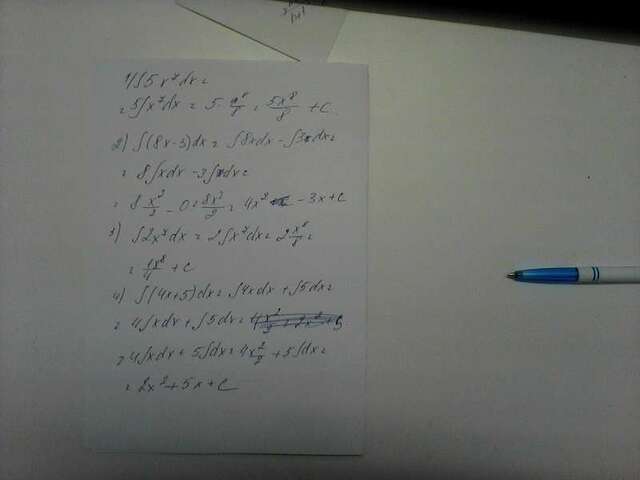 1) ∫5x⁷dx =
= 5∫x⁷dx = 5·x⁸/8 = 5x⁸/8 + C
2) ∫(8x-3)dx = ∫8xdx - ∫3dx =
= 8∫xdx - 3∫dx =
= 8 x²/2 - 0 = 8x²/2 = 4x² - 3x + C
3) ∫2x⁷dx = 2∫x⁷dx = 2 x⁸/8 =
= x⁸/4 + C
4) ∫(4x+5)dx = ∫4xdx + ∫5dx =
= 4∫xdx + ∫5dx =
= 4∫xdx + 5∫dx = 4x²/2 + 5∫dx =
= 2x² + 5x + C